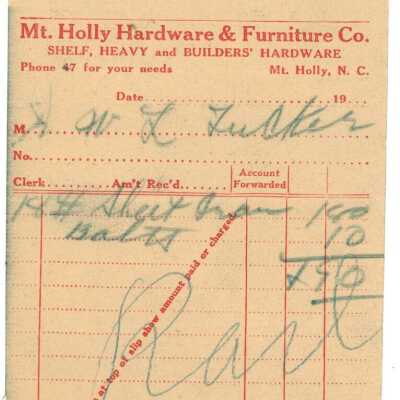 Mt. Holly Hardware & Furniture Co.
SHELF, HEAVY and BUILDERS' HARDWARE
Phone 47 for your needs Mt. Holly, N. C.
Date 19
M W L Tucker
No.
Clerk Am't Rec'd. Account Forwarded
Sheet Iron 100
Bolts 10
at top of slip show amount paid or charged.